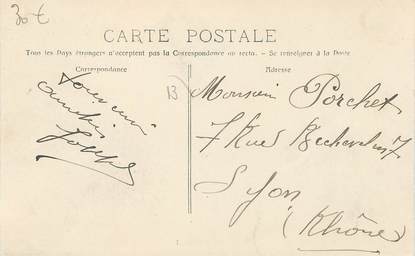 30 €
CARTE POSTALE
Tous les Pays étrangers n'acceptent pas la Correspondance au recto. - Se renseigner à la Poste
Correspondance
Adresse
B
Monsieur Porchet
7 Rue Bechevelin 7
Lyon
(Rhône)